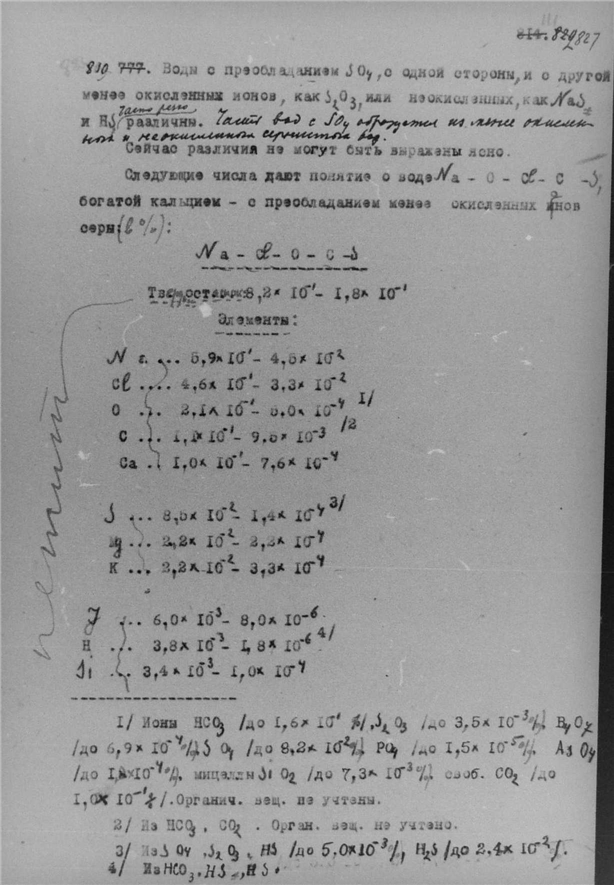 814. 829 827
819 777. Воды с преобладанием SO4, с одной стороны, и с другой
менее окисленных ионов, как S2O3, или неокисленных, как NaS
часто резко
и HS различны. Часть вод с SO4 образуется из менее окислен-
ных и неокисленных сернистых вод.
Сейчас различия не могут быть выражены ясно.
Следующие числа дают понятие о воде Na - O - Cl - C - S,
богатой кальцием - с преобладанием менее окисленных ионов
серы (в %):
Na - Cl - O - C - S
8,2× 10⁻¹ - 1,8× 10⁻¹
Элементы:
Na ... 5,9× 10⁻¹ - 4,5× 10⁻²
Cl .... 4,6× 10⁻¹ - 3,3× 10⁻²
O ... 2,1× 10⁻¹ - 5,0× 10⁻⁴ 1/
C ... 1,1× 10⁻¹ - 9,5× 10⁻³ /2
Ca .. 1,0× 10⁻¹ - 7,6× 10⁻⁴
S ... 8,5× 10⁻² - 1,4× 10⁻⁴ 3/
Mg ... 2,2× 10⁻² - 2,2× 10⁻⁴
K ... 2,2× 10⁻² - 3,3× 10⁻⁴
J ... 6,0× 10⁻³ - 8,0× 10⁻⁶
H ... 3,8× 10⁻³ - 1,8× 10⁻⁶ 4/
Si ... 3,4× 10⁻³ - 1,0× 10⁻⁴
петит
1/ Ионы HCO3 /до 1,6× 10⁻¹ %/, S2O3 /до 3,5× 10⁻³%/, B4O7
/до 6,9× 10⁻⁴%/, SO4 /до 8,2× 10⁻²%/, PO4 /до 1,5× 10⁻⁵%/. AsO4
/до ×10⁻⁴%/, мицеллы SiO2 /до 7,3× 10⁻³%/, своб. CO2 /до
1,0× 10⁻¹%/. Органич. вещ. не учтены.
2/ Из HCO3, CO2. Орган. вещ. не учтено.
3/ Из SO4, S2O3, HS /до 5,0×10⁻³%/, H2S /до 2,4× 10⁻²/.
4/ Из HCO3, HS, HS.